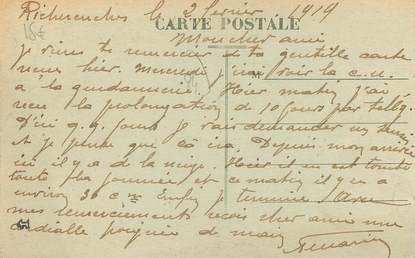 Richerenches le 2 février 1919
CARTE POSTALE
Mon cher ami
Je viens te remercier de ta gentille carte
reçue hier. Mercredi j'irai voir la c.m.
a la gendarmerie. Hier matin j'ai
reçu la prolongation de 10 jours par
D'ici q.q. jours je vais demander un
et je pense que ca ira. Depuis mon arrivée
ici il y a de la neige. Hier il en est tombé
toute la journée et ce matin il y en a
environ 30 c.m. Enfin je termine. Avec
mes remerciements reçois cher ami une
cordialle poignée de main